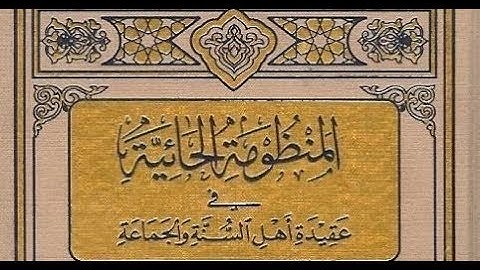 المَنْظُومَةُ الحَائِيَّةُ
فِي
عَقِيدَةِ أَهْلِ السُّنَّةِ وَالجَمَاعَةِ